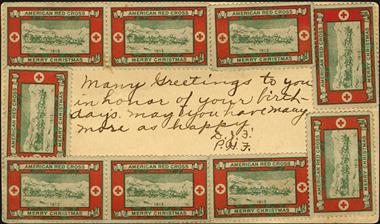 AMERICAN RED CROSS AMERICAN RED CROSS AMERICAN RED CROSS AMERICAN RED CROSS
MERRY CHRISTMAS MERRY CHRISTMAS MERRY CHRISTMAS MERRY CHRISTMAS
AMERICAN RED CROSS
MERRY CHRISTMAS
AMERICAN RED CROSS
MERRY CHRISTMAS
Many Greetings to you
in honor of your birth-
days. may you have many
more as happy.
P.H.F.
AMERICAN RED CROSS
MERRY CHRISTMAS
AMERICAN RED CROSS AMERICAN RED CROSS AMERICAN RED CROSS
MERRY CHRISTMAS MERRY CHRISTMAS MERRY CHRISTMAS